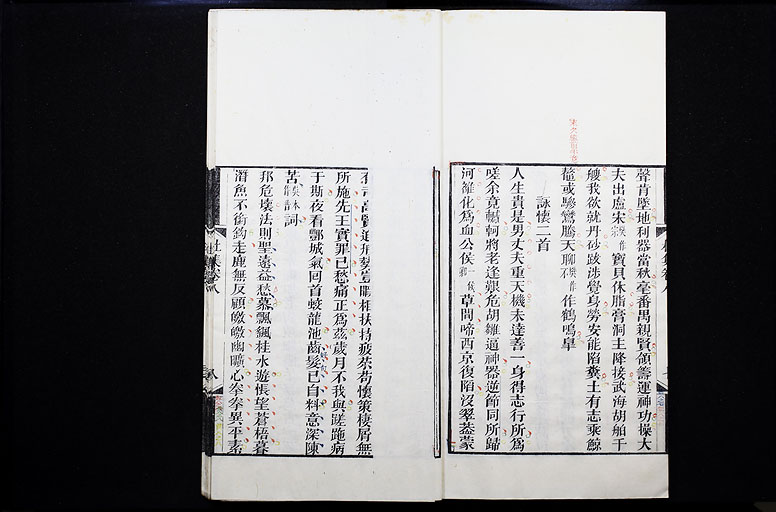 聲肯墜地利器當秋毫番禺親賢領籌運神功操大
夫出盧宋樊作宗寶貝休脂膏洞主降接武海胡舶千
艘我欲就丹砂跋涉覺身勞安能陷糞土有志乘鯨
鼇或驂鸞騰天聊不樊作作鶴鳴皐
詠懷二首
人生貴是男丈夫重天機未達善一身得志行所爲
嗟余竟轗軻將老逢艱危胡雛逼神器逆節同所歸
河雒化爲血公侯草間啼西京復陷沒翠蓋蒙
疲苶苟懷策棲屑無
所施先王實罪已愁痛正爲茲歲月不我與蹉跎病
于斯夜看酆城氣回首蛟龍池齒髮已自料意深陳
苦詞
邦危壞法則聖遠益愁慕飄颻桂水遊悵望蒼梧暮
潛魚不銜鈎走鹿無反顧皦皦幽曠心拳拳異平素
杜集卷八
八